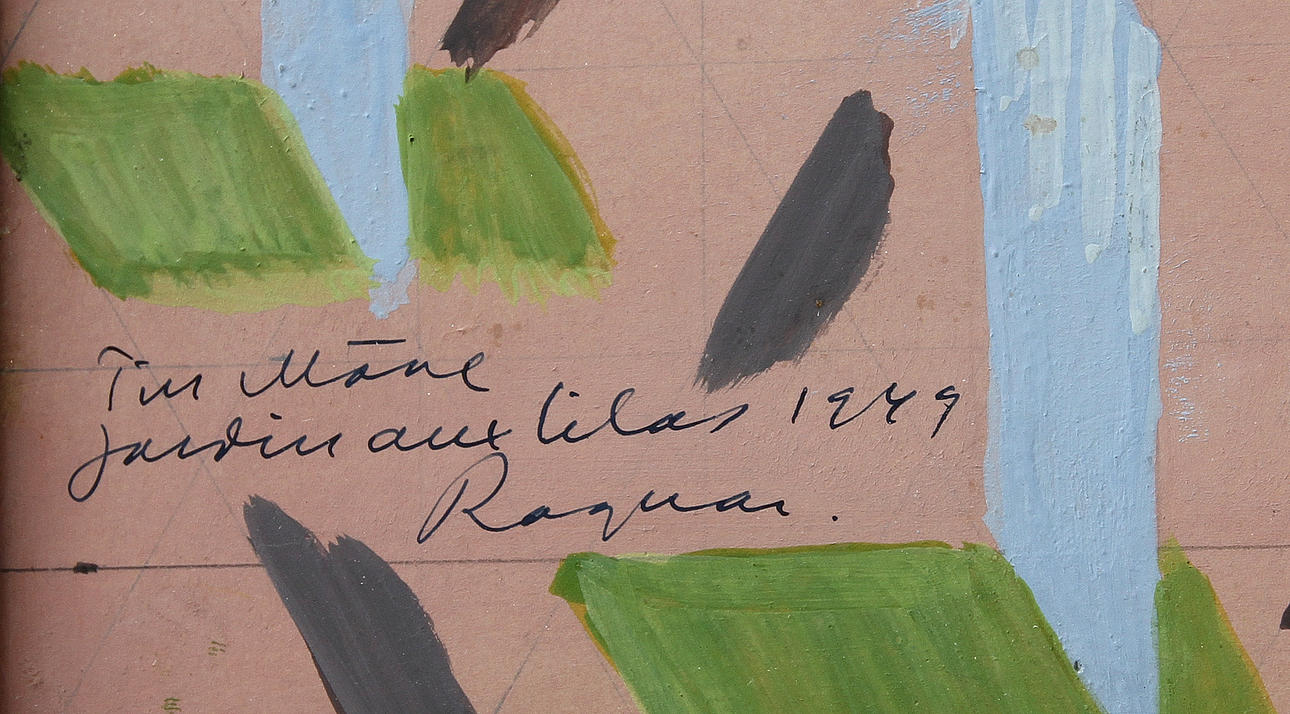 Till Måne
Jardin aux lilas 1949
Ragnar.